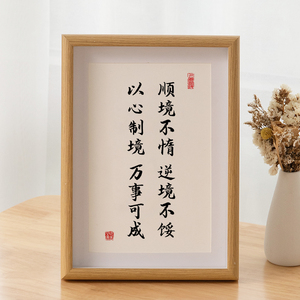 顺境不惰 逆境不馁
以心制境 万事可成